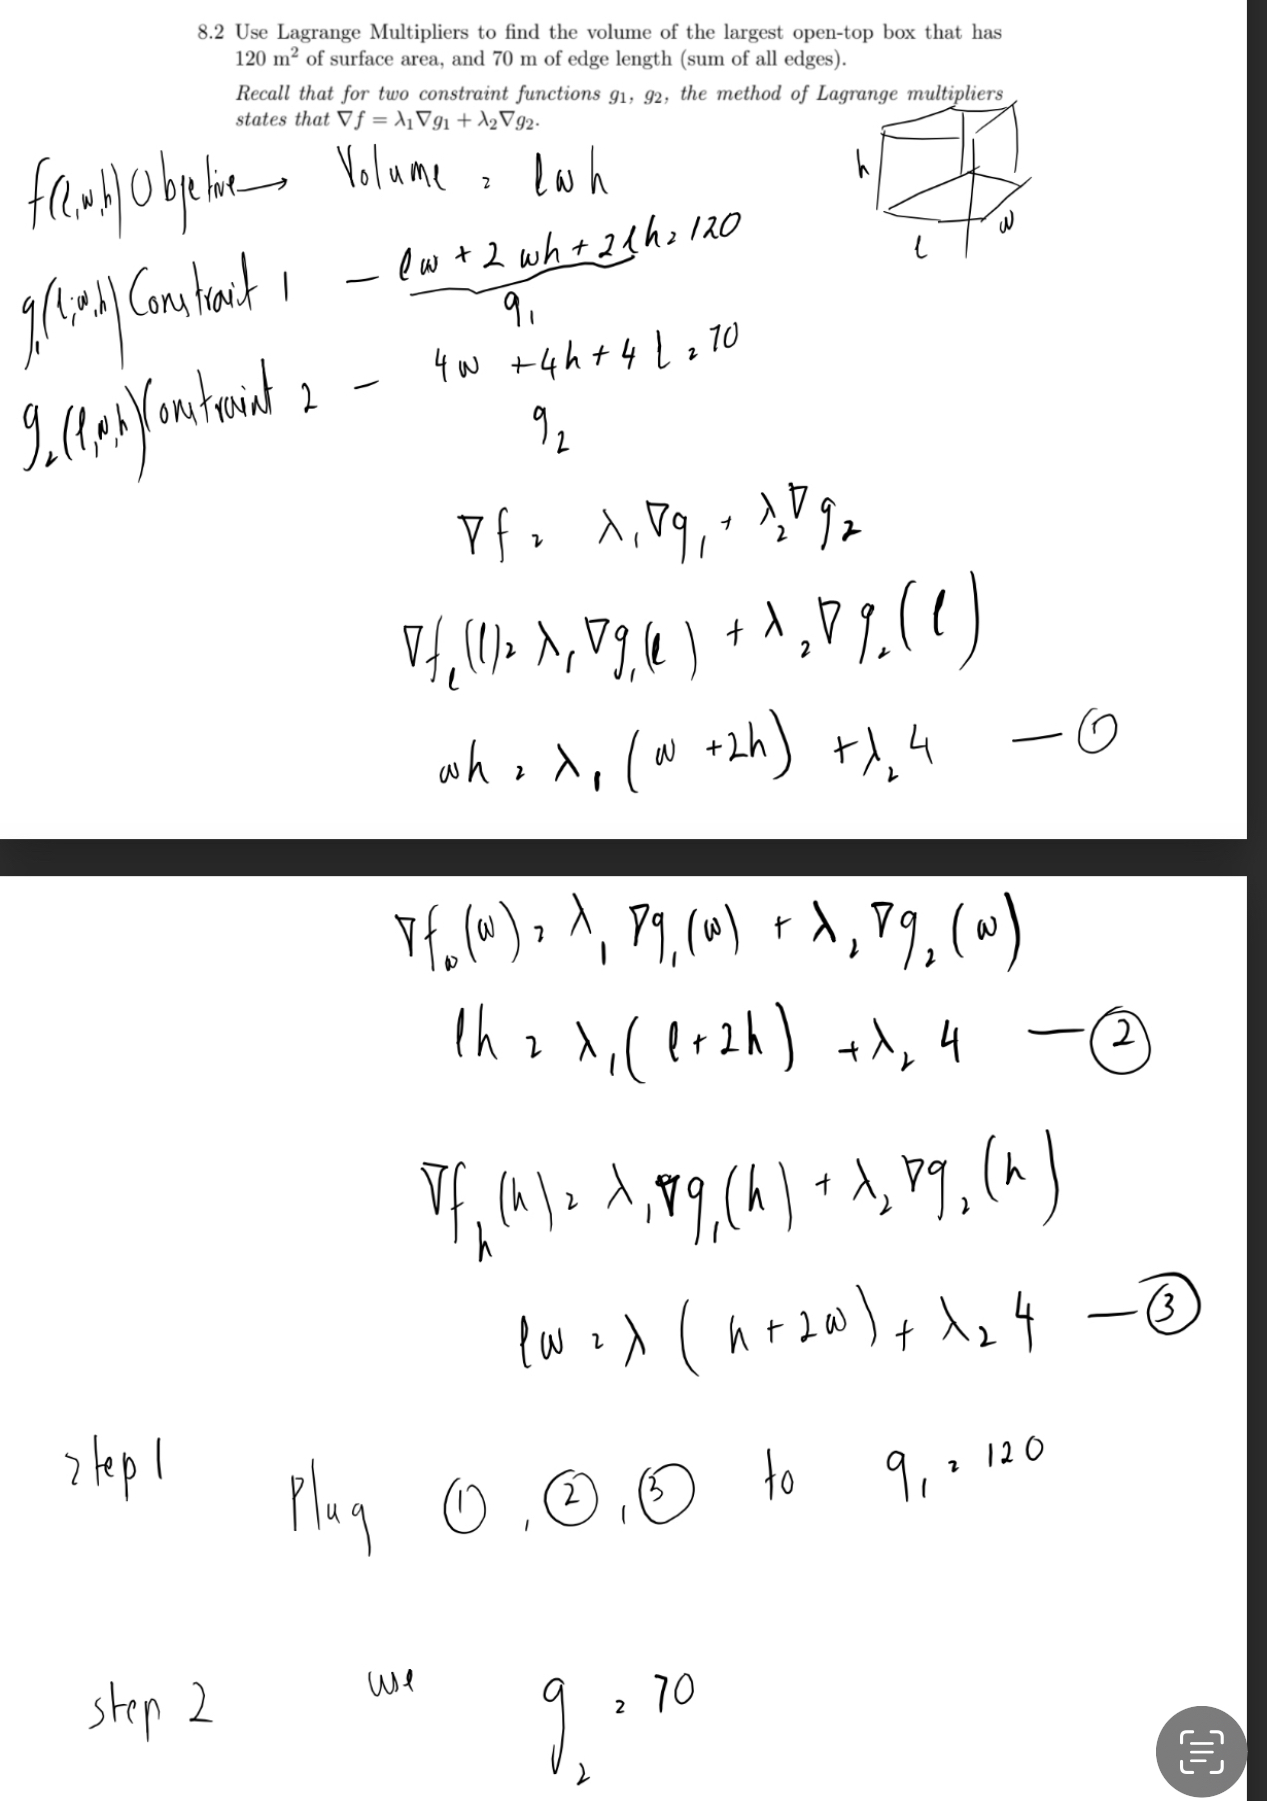 8.2 Use Lagrange Multipliers to find the volume of the largest open-top box that has
120 m² of surface area, and 70 m of edge length (sum of all edges).
Recall that for two constraint functions g₁, g₂, the method of Lagrange multipliers
states that ∇f = λ₁∇g₁ + λ₂∇g₂.
f(l,w,h) Objetive → Volume = lwh
h
l
w
g₁(l,w,h) Constrait 1 – lw + 2wh + 2lh = 120
g₁
g₂(l,w,h) Constraint 2 – 4w + 4h + 4l = 70
g₂
∇f = λ₁∇g₁ + λ₂∇g₂
∇fₗ(l) = λ₁∇g₁(l) + λ₂∇g₂(l)
wh = λ₁(w + 2h) + λ₂4 — ①
∇f_w(w) = λ₁∇g₁(w) + λ₂∇g₂(w)
lh = λ₁(l + 2h) + λ₂4 — ②
∇fₕ(h) = λ₁∇g₁(h) + λ₂∇g₂(h)
lw = λ(h + 2w) + λ₂4 — ③
step 1 Plug ①, ②, ③ to g₁ = 120
step 2 use g₂ = 70